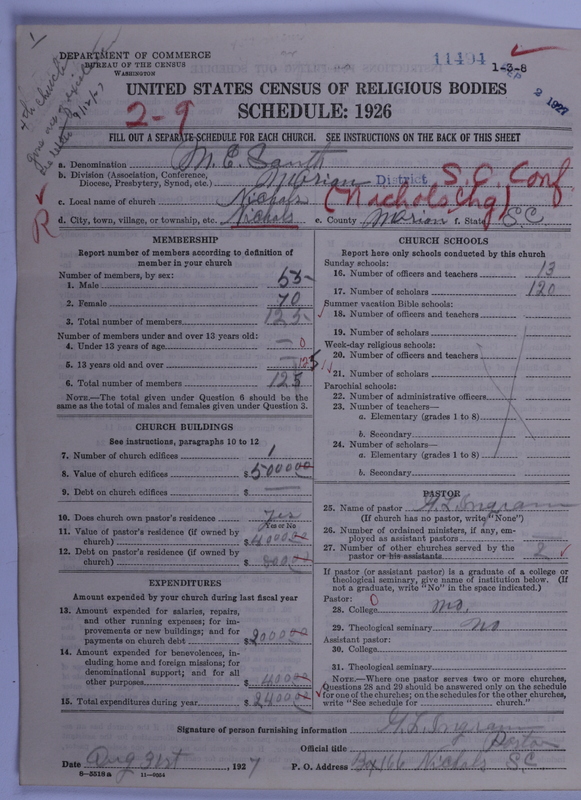 1
DEPARTMENT OF COMMERCE
BUREAU OF THE CENSUS
WASHINGTON
11494
1-3-8
SEP 2 1927
4th church
9/12/27
UNITED STATES CENSUS OF RELIGIOUS BODIES
2-9
SCHEDULE: 1926
FILL OUT A SEPARATE SCHEDULE FOR EACH CHURCH. SEE INSTRUCTIONS ON THE BACK OF THIS SHEET
a. Denomination M. E. South
b. Division (Association, Conference, Diocese, Presbytery, Synod, etc.) Marion District S. C. Conf
(Nachols Chg)
c. Local name of church Nichols
R
d. City, town, village, or township, etc. Nichols e. County Marion f. State S C
MEMBERSHIP
Report number of members according to definition of member in your church
Number of members, by sex:
1. Male 55
2. Female 70
3. Total number of members 125
Number of members under and over 13 years old:
4. Under 13 years of age — 0
5. 13 years old and over — 125
6. Total number of members 125
NOTE.—The total given under Question 6 should be the same as the total of males and females given under Question 3.
CHURCH BUILDINGS
See instructions, paragraphs 10 to 12
7. Number of church edifices 1
8. Value of church edifices $ 500000
9. Debt on church edifices $ —
10. Does church own pastor's residence Yes
Yes or No
11. Value of pastor's residence (if owned by church) $ 400000
12. Debt on pastor's residence (if owned by church) $
EXPENDITURES
Amount expended by your church during last fiscal year
13. Amount expended for salaries, repairs, and other running expenses; for improvements or new buildings; and for payments on church debt $ 200000
14. Amount expended for benevolences, including home and foreign missions; for denominational support; and for all other purposes $ 40000
15. Total expenditures during year $ 240000
CHURCH SCHOOLS
Report here only schools conducted by this church
Sunday schools:
16. Number of officers and teachers 13
17. Number of scholars 120
Summer vacation Bible schools:
18. Number of officers and teachers
19. Number of scholars
Week-day religious schools:
20. Number of officers and teachers
21. Number of scholars
Parochial schools:
22. Number of administrative officers
23. Number of teachers—
a. Elementary (grades 1 to 8)
b. Secondary
24. Number of scholars—
a. Elementary (grades 1 to 8)
b. Secondary
PASTOR
25. Name of pastor G. L. Ingram
(If church has no pastor, write "None")
26. Number of ordained ministers, if any, employed as assistant pastors —
27. Number of other churches served by the pastor or his assistants 2
If pastor (or assistant pastor) is a graduate of a college or theological seminary, give name of institution below. (If not a graduate, write "No" in the space indicated.)
Pastor: 0
28. College No.
29. Theological seminary No
Assistant pastor:
30. College
31. Theological seminary
NOTE.—Where one pastor serves two or more churches, Questions 28 and 29 should be answered only on the schedule for one of the churches; on the schedules for the other churches, write "See schedule for ______ church."
Signature of person furnishing information G. L. Ingram
Official title Pastor
Date Aug 31st, 1927 P. O. Address Box 166 Nichols S.C.
8-5518a 11-9054